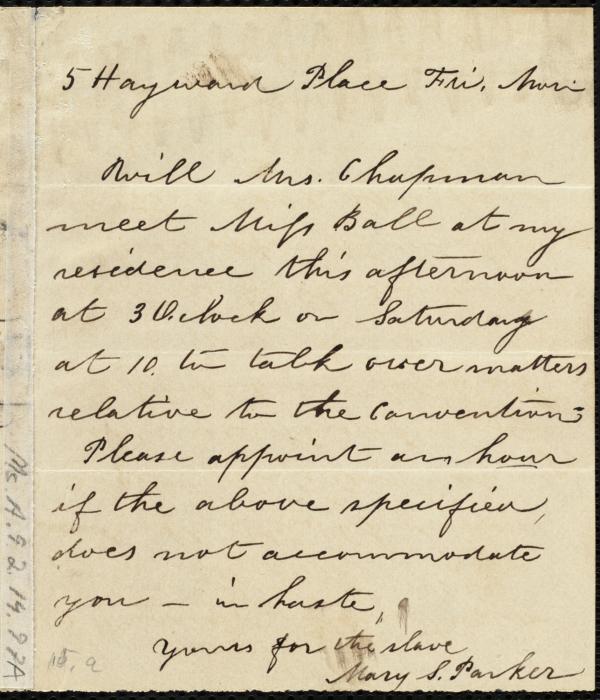 5 Hayward Place Fri. Morn
Will Mrs. Chapman
meet Miss Ball at my
residence this afternoon
at 3 O.clock or Saturday
at 10. to talk over matters
relative to the Convention;
Please appoint an hour
if the above specified,
does not accommodate
you – in haste,
yours for the slave
Mary S. Parker
Ms. A. 9. 2. 14. 97A